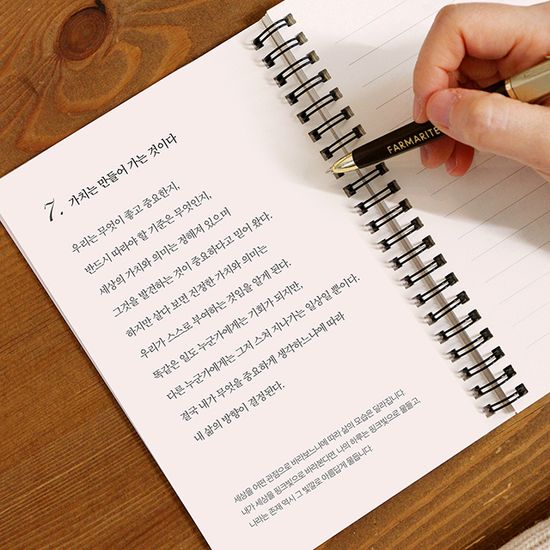 7. 가치는 만들어 가는 것이다
우리는 무엇이 좋고 중요한지,
반드시 따라야 할 기준은 무엇인지,
세상의 가치와 의미는 정해져 있으며
그것을 발견하는 것이 중요하다고 믿어 왔다.
하지만 살다 보면 진정한 가치와 의미는
우리가 스스로 부여하는 것임을 알게 된다.
똑같은 일도 누군가에게는 기회가 되지만,
다른 누군가에게는 그저 스쳐 지나가는 일상일 뿐이다.
결국 내가 무엇을 중요하게 생각하느냐에 따라
내 삶의 방향이 결정된다.
세상을 어떤 관점으로 바라보느냐에 따라 삶의 모습은 달라집니다.
내가 세상을 핑크빛으로 바라본다면, 나의 하루는 핑크빛으로 물들고,
나라는 존재 역시 그 빛깔로 아름답게 물듭니다.
FARMARITE